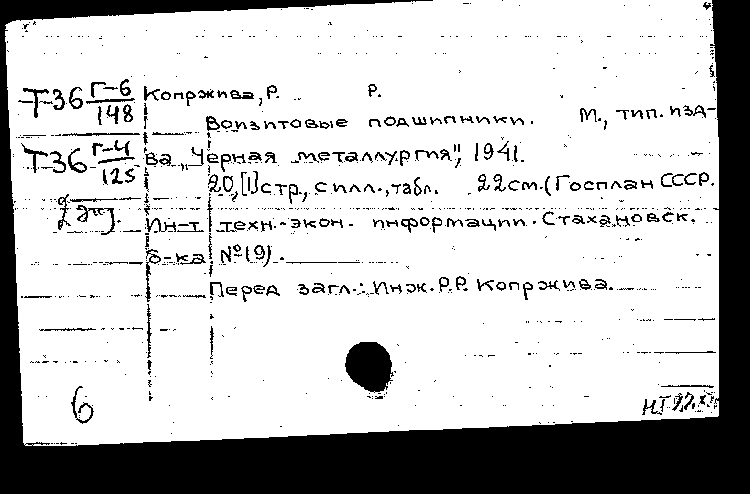 Т36 Г-6/148 Копрживa, Р. Р.
Вонзитовые подшипники. М., тип. изд-
Т36 Г-4/125 ва „Черная металлургия", 1941.
20, [1] стр., с илл., табл. 22 см. (Госплан СССР.
[2 э.]. Ин-т техн.-экон. информации. Стахановск.
б-ка №(9).
Перед загл.: Инж. Р.Р. Копржива.
6